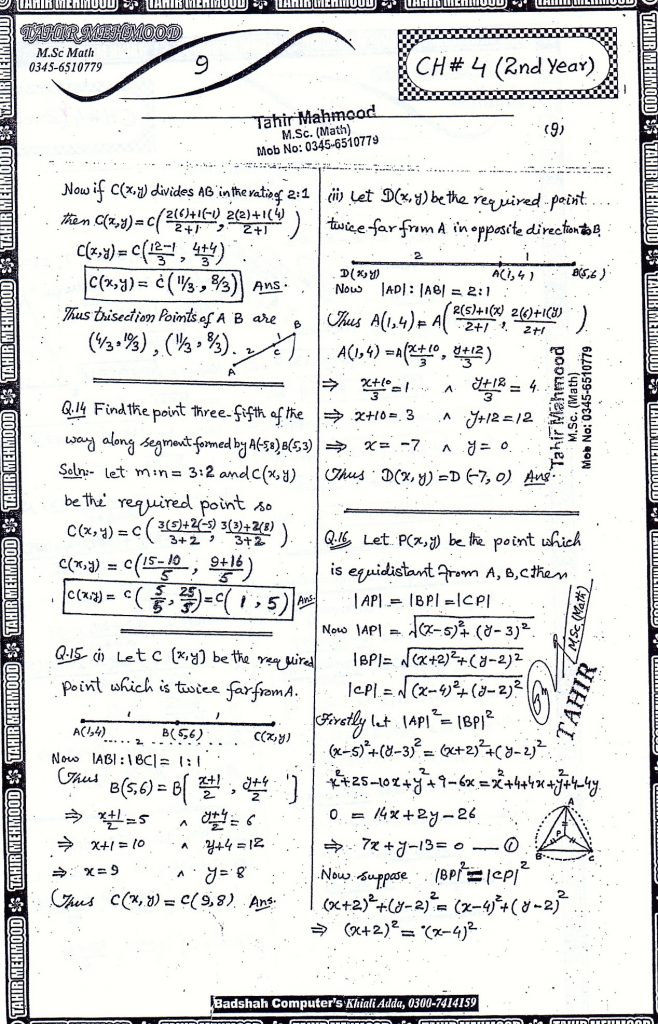 TAHIR MEHMOOD
M.Sc Math
0345-6510779
9
CH# 4 (2nd Year)
Tahir Mahmood
M.Sc. (Math)
Mob No: 0345-6510779
(9)
Now if C(x,y) divides AB in the ratio of 2:1
then C(x,y) = C( 2(6)+1(-1)/2+1 , 2(2)+1(4)/2+1 )
C(x,y) = C( 12-1/3 , 4+4/3 )
C(x,y) = C( 11/3 , 8/3 ) Ans.
Thus trisection Points of A B are
(4/3, 10/3) , (11/3, 8/3).
A 2 C 1 B
Q.14 Find the point three-fifth of the
way along segment formed by A(-5,8), B(5,3)
Soln:- let m:n = 3:2 and C(x,y)
be the required point so
C(x,y) = C( 3(5)+2(-5)/3+2 , 3(3)+2(8)/3+2 )
C(x,y) = C( 15-10/5 , 9+16/5 )
C(x,y) = C( 5/5 , 25/5 ) = C( 1 , 5 ) Ans
Q.15 (i) Let C [x,y] be the required
point which is twice far from A.
1 1
A(1,4) B(5,6) C(x,y)
2
Now |AB| : |BC| = 1:1
Thus B(5,6) = B[ x+1/2 , y+4/2 ]
⇒ x+1/2 = 5 ∧ y+4/2 = 6
⇒ x+1 = 10 ∧ y+4 = 12
⇒ x = 9 ∧ y = 8
Thus C(x,y) = C(9,8) Ans.
(ii) Let D(x,y) be the required point
twice far from A in opposite direction to B.
2 1
D(x,y) A(1,4) B(5,6)
Now |AD| : |AB| = 2:1
Thus A(1,4) = A( 2(5)+1(x)/2+1 , 2(6)+1(y)/2+1 )
A(1,4) = A( x+10/3 , y+12/3 )
⇒ x+10/3 = 1 ∧ y+12/3 = 4
⇒ x+10 = 3 ∧ y+12 = 12
⇒ x = -7 ∧ y = 0
Thus D(x,y) = D(-7,0) Ans.
Tahir Mahmood
M.Sc. (Math)
Mob No: 0345-6510779
Q.16 Let P(x,y) be the point which
is equidistant from A, B, C then
|AP| = |BP| = |CP|
Now |AP| = √(x-5)²+(y-3)²
|BP| = √(x+2)²+(y-2)²
|CP| = √(x-4)²+(y-2)²
TAHIR
MSc (Math)
Firstly let |AP|² = |BP|²
(x-5)²+(y-3)² = (x+2)²+(y-2)²
x²+25-10x+y²+9-6x = x²+4+4x+y²+4-4y
0 = 14x+2y-26
⇒ 7x+y-13 = 0 — ①
A
P
B C
Now suppose |BP|² = |CP|²
(x+2)²+(y-2)² = (x-4)²+(y-2)²
⇒ (x+2)² = (x-4)²
Badshah Computer's Khiali Adda, 0300-7414159
TAHIR MEHMOOD